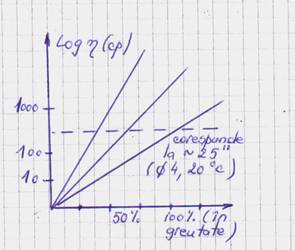 Log η (cp)
1000
100
10
corespunde
la ~ 25"
(φ4, 20°C)
50%
100% (în
greutate)